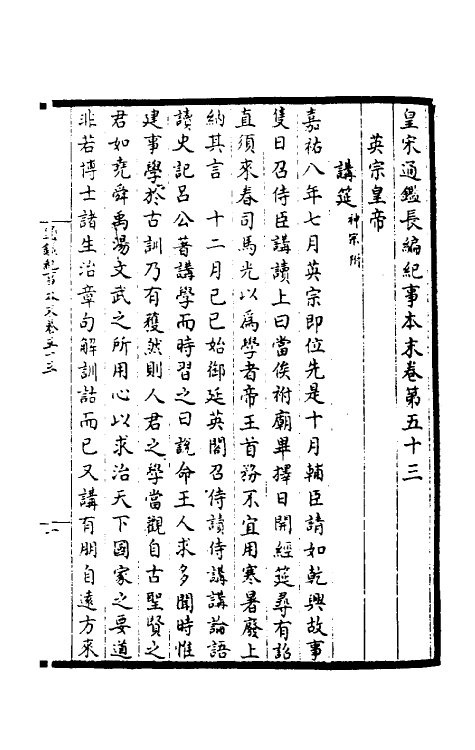 皇宋通鑑長編紀事本末卷第五十三
英宗皇帝
講筵神宗附
嘉祐八年七月英宗即位先是十月輔臣請如乾興故事
隻日召侍臣講讀上曰當俟祔廟畢擇日開經筵尋有詔
直須來春司馬光以爲學者帝王首務不宜用寒暑廢上
納其言　十二月己巳始御延英閣召侍讀侍講講論語
讀史記呂公著講學而時習之曰說命王人求多聞時惟
建事學於古訓乃有獲然則人君之學當觀自古聖賢之
君如堯舜禹湯文武之所用心以求治天下國家之要道
非若博士諸生治章句解訓詁而已又講有朋自遠方來
卷五十三
一